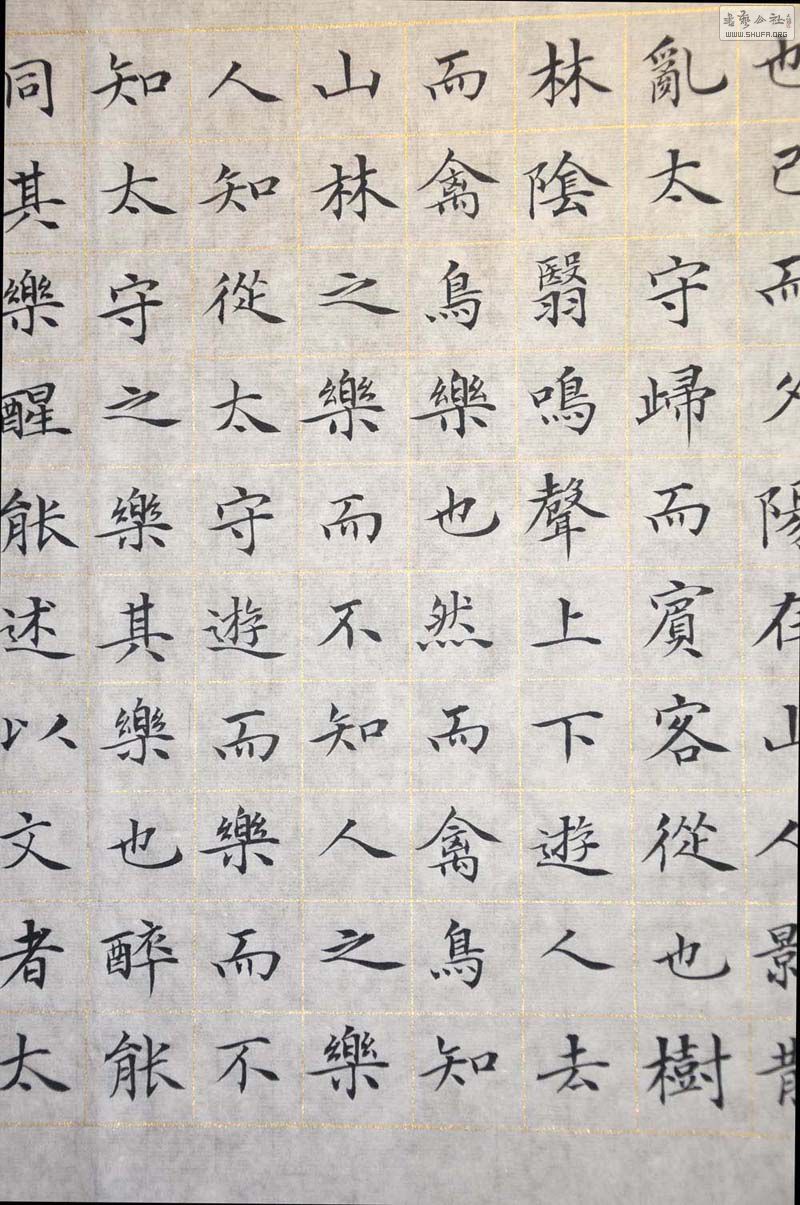 也已而夕陽在山人景散
亂太守歸而賓客從也樹
林陰翳鳴聲上下遊人去
而禽鳥樂也然而禽鳥知
山林之樂而不知人之樂
人知從太守遊而樂而不
知太守之樂其樂也醉能
同其樂醒能述以文者太
書藝公社
WWW.SHUFA.ORG